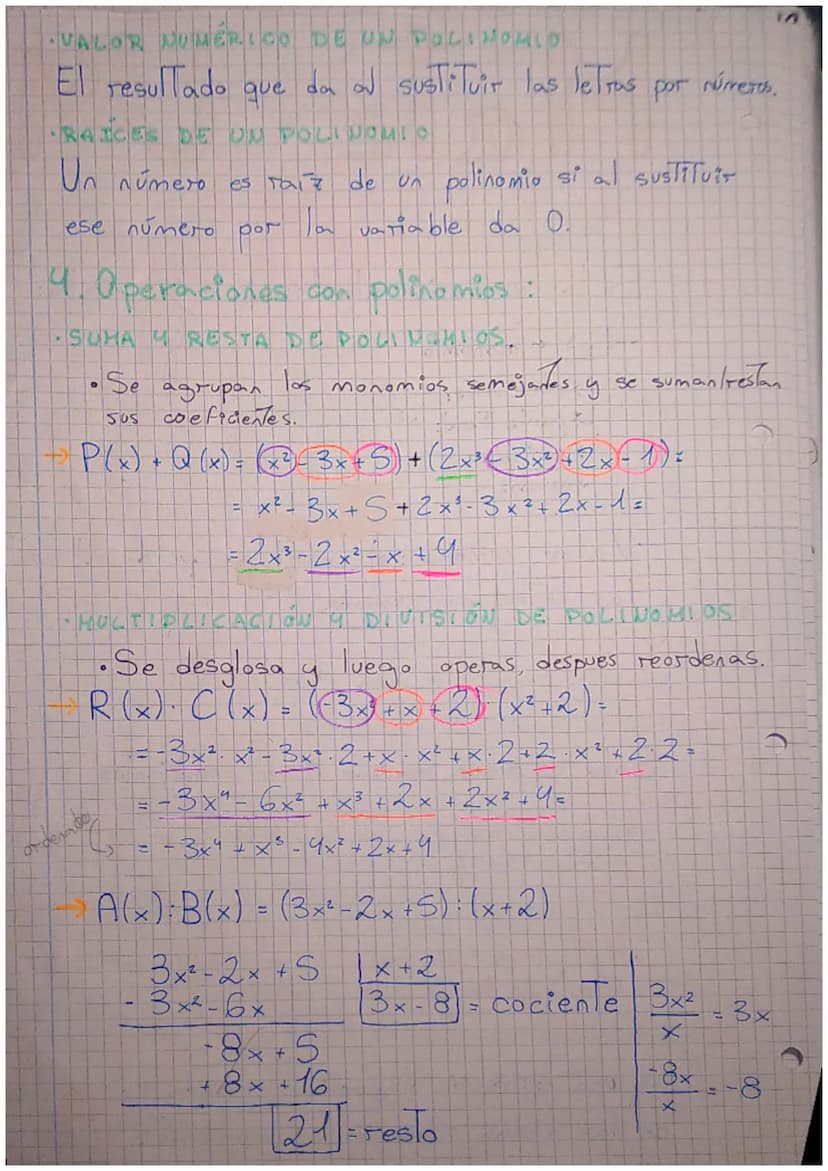 · VALOR NUMÉRICO DE UN POLINOMIO
El resultado que da al sustituir las letras por números.
· RAÍCES DE UN POLINOMIO
Un número es raíz de un polinomio si al sustituir
ese número por la variable da 0.
4. Operaciones con polinomios :
· SUMA Y RESTA DE POLINOMIOS.
• Se agrupan los monomios semejantes y se suman/restan
sus coeficientes.
→ P(x) + Q(x) = (x² - 3x + 5) + (2x³ - 3x² + 2x - 1) =
= x² - 3x + 5 + 2x³ - 3x² + 2x - 1 =
= 2x³ - 2x² - x + 4
· MULTIPLICACIÓN Y DIVISIÓN DE POLINOMIOS
• Se desglosa y luego operas, despues reordenas.
→ R(x) · C(x) = (-3x² + x + 2) · (x² + 2) =
= -3x² · x² - 3x² · 2 + x · x² + x · 2 + 2 · x² + 2 · 2 =
= -3x⁴ - 6x² + x³ + 2x + 2x² + 4 =
= -3x⁴ + x³ - 4x² + 2x + 4
→ A(x) : B(x) = (3x² - 2x + 5) : (x + 2)
3x² - 2x + 5 | x + 2
- 3x² - 6x 3x - 8 = cociente
3x²/x = 3x
- 8x + 5
+ 8x + 16
-8x/x = -8
21 = resto